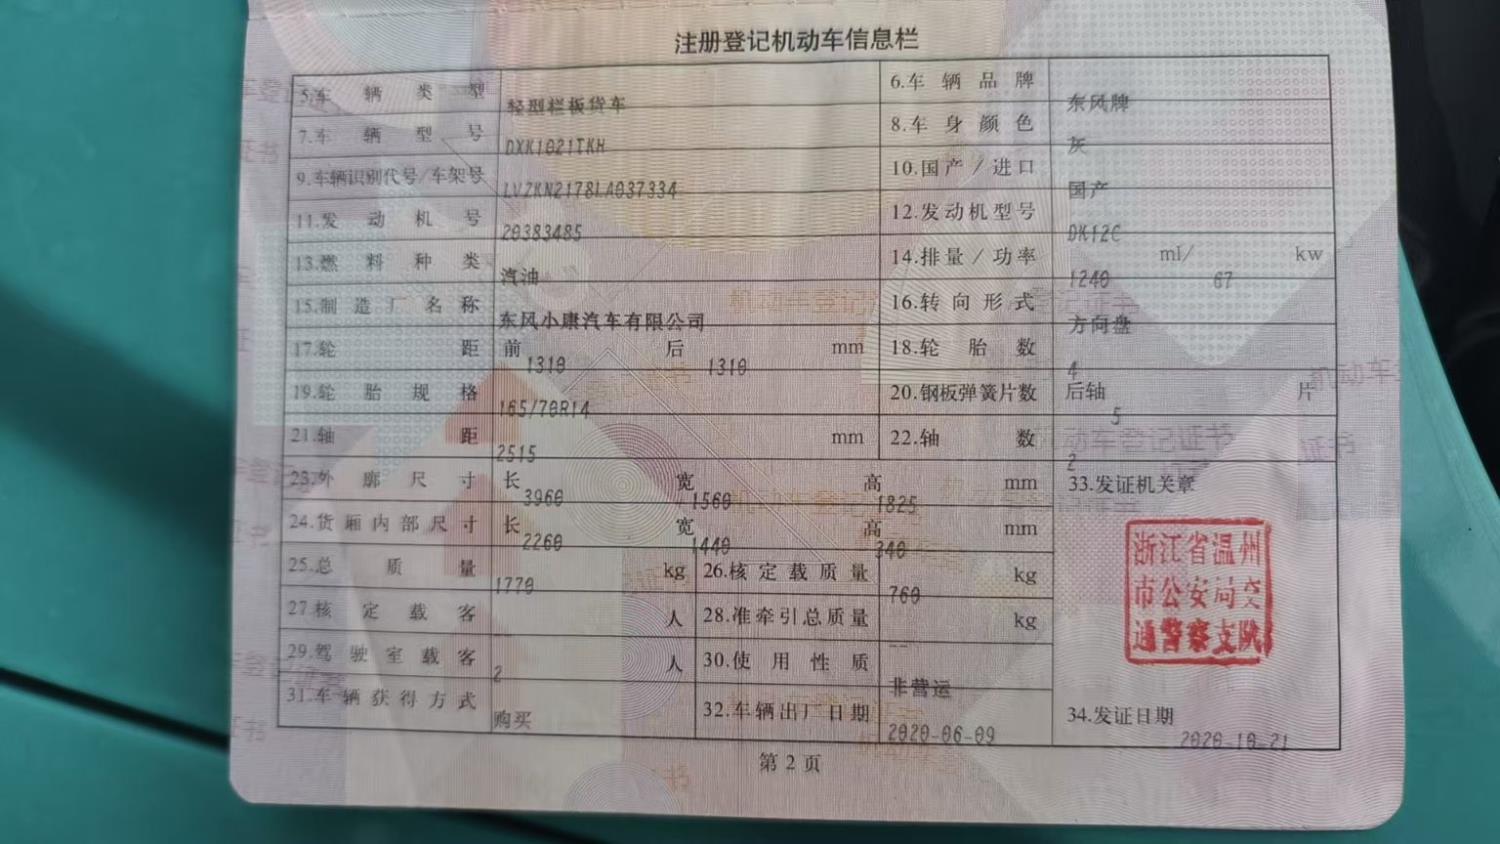 注册登记机动车信息栏
5.车辆类型 轻型栏板货车 6.车辆品牌 东风牌
7.车辆型号 DXK1021TKH 8.车身颜色 灰
9.车辆识别代号/车架号 LVZKN2178LA037334 10.国产/进口 国产
11.发动机号 20383485 12.发动机型号 DK12C
13.燃料种类 汽油 14.排量/功率 1240 ml/ 67 kw
15.制造厂名称 东风小康汽车有限公司 16.转向形式 方向盘
17.轮距 前 1310 后 1310 mm 18.轮胎数 4
19.轮胎规格 165/70R14 20.钢板弹簧片数 后轴 5 片
21.轴距 2515 mm 22.轴数 2
23.外廓尺寸 长 3960 宽 1560 高 1825 mm 33.发证机关章
24.货厢内部尺寸 长 2260 宽 1440 高 340 mm
25.总质量 1770 kg 26.核定载质量 760 kg
27.核定载客 人 28.准牵引总质量 -- kg
29.驾驶室载客 2 人 30.使用性质 非营运
31.车辆获得方式 购买 32.车辆出厂日期 2020-06-09 34.发证日期 2020-10-21
浙江省温州
市公安局交
通警察支队
第2页